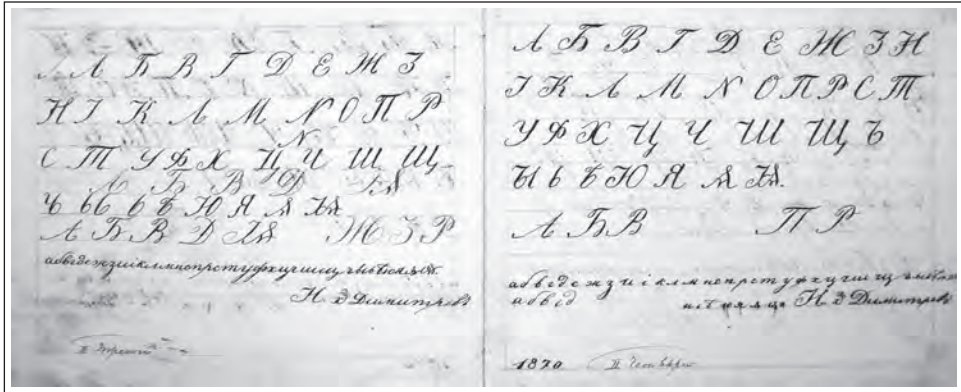 А Б В Г Д Е Ж З
И І К Л М N О П Р
N
С Т У Ф Х Ц Ч Ш Щ
А Б В Д Ѭ
Ъ ЬІ Ь Ѣ Ю Я Ѫ Ѭ
А Б В Д Ѭ Ж З Р
абвгдежзиіклмнопрстуфхцчшщъыьѣюяѫѭ.
Н. Д Димитровъ
А Б В Г Д Е Ж З И
І К Л М N О П Р С Т
У Ф Х Ц Ч Ш Щ Ъ
Ы Ь Ѣ Ю Я Ѫ Ѭ.
А Б В П Р
абвгдежзиіклмнопрстуфхцчшщ
абвгд Н. Д Димитровъ
1870 II